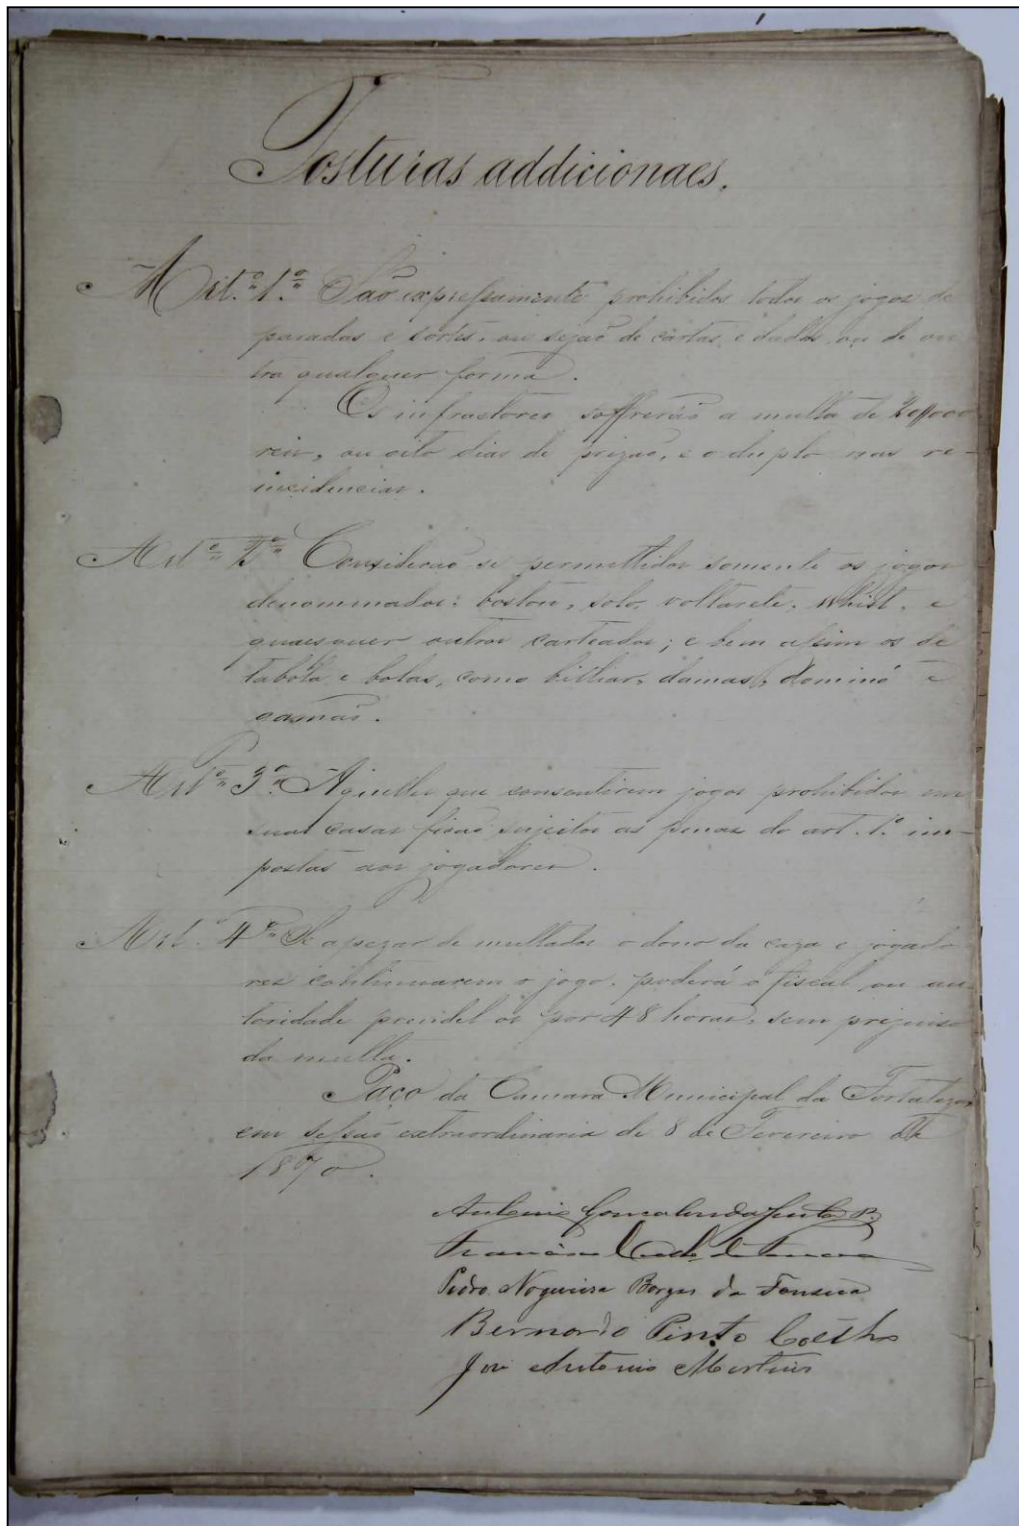 Posturas addicionaes.
Art.º 1.º São expressamente prohibidos todos os jogos de
paradas e sortes, ou sejão de cartas e dados, ou de ou
tra qualquer forma.
Os infractores soffrerão a multa de 20$000
reis, ou oito dias de prizão, e o duplo nas re-
incidencias.
Artº 2º Considerão se permittidos somente os jogos
denominados: boston, solo, voltarete, whist, e
quaesquer outros carteados; e bem assim os de
tabola e bolas, como bilhar, damas, dominó e
gamão.
Artº 3º. Aquelles que consentirem jogos prohibidos em
suas casas ficão sujeitos as penas do art. 1º im-
postas aos jogadores.
Art. 4º Se apezar de multados o dono da caza e jogado
res continuarem o jogo, poderá o fiscal ou au
toridade prendel os por 48 horas, sem prejuiso
da multa.
Paço da Camara Municipal da Fortaleza
em sessão extraordinaria de 8 de Fevereiro de
1870.
Antonio Gonçalves da
Francisco
Pedro Nogueira Borges da Fonseca
Bernardo Pinto Coêlho
José Antonio Martins